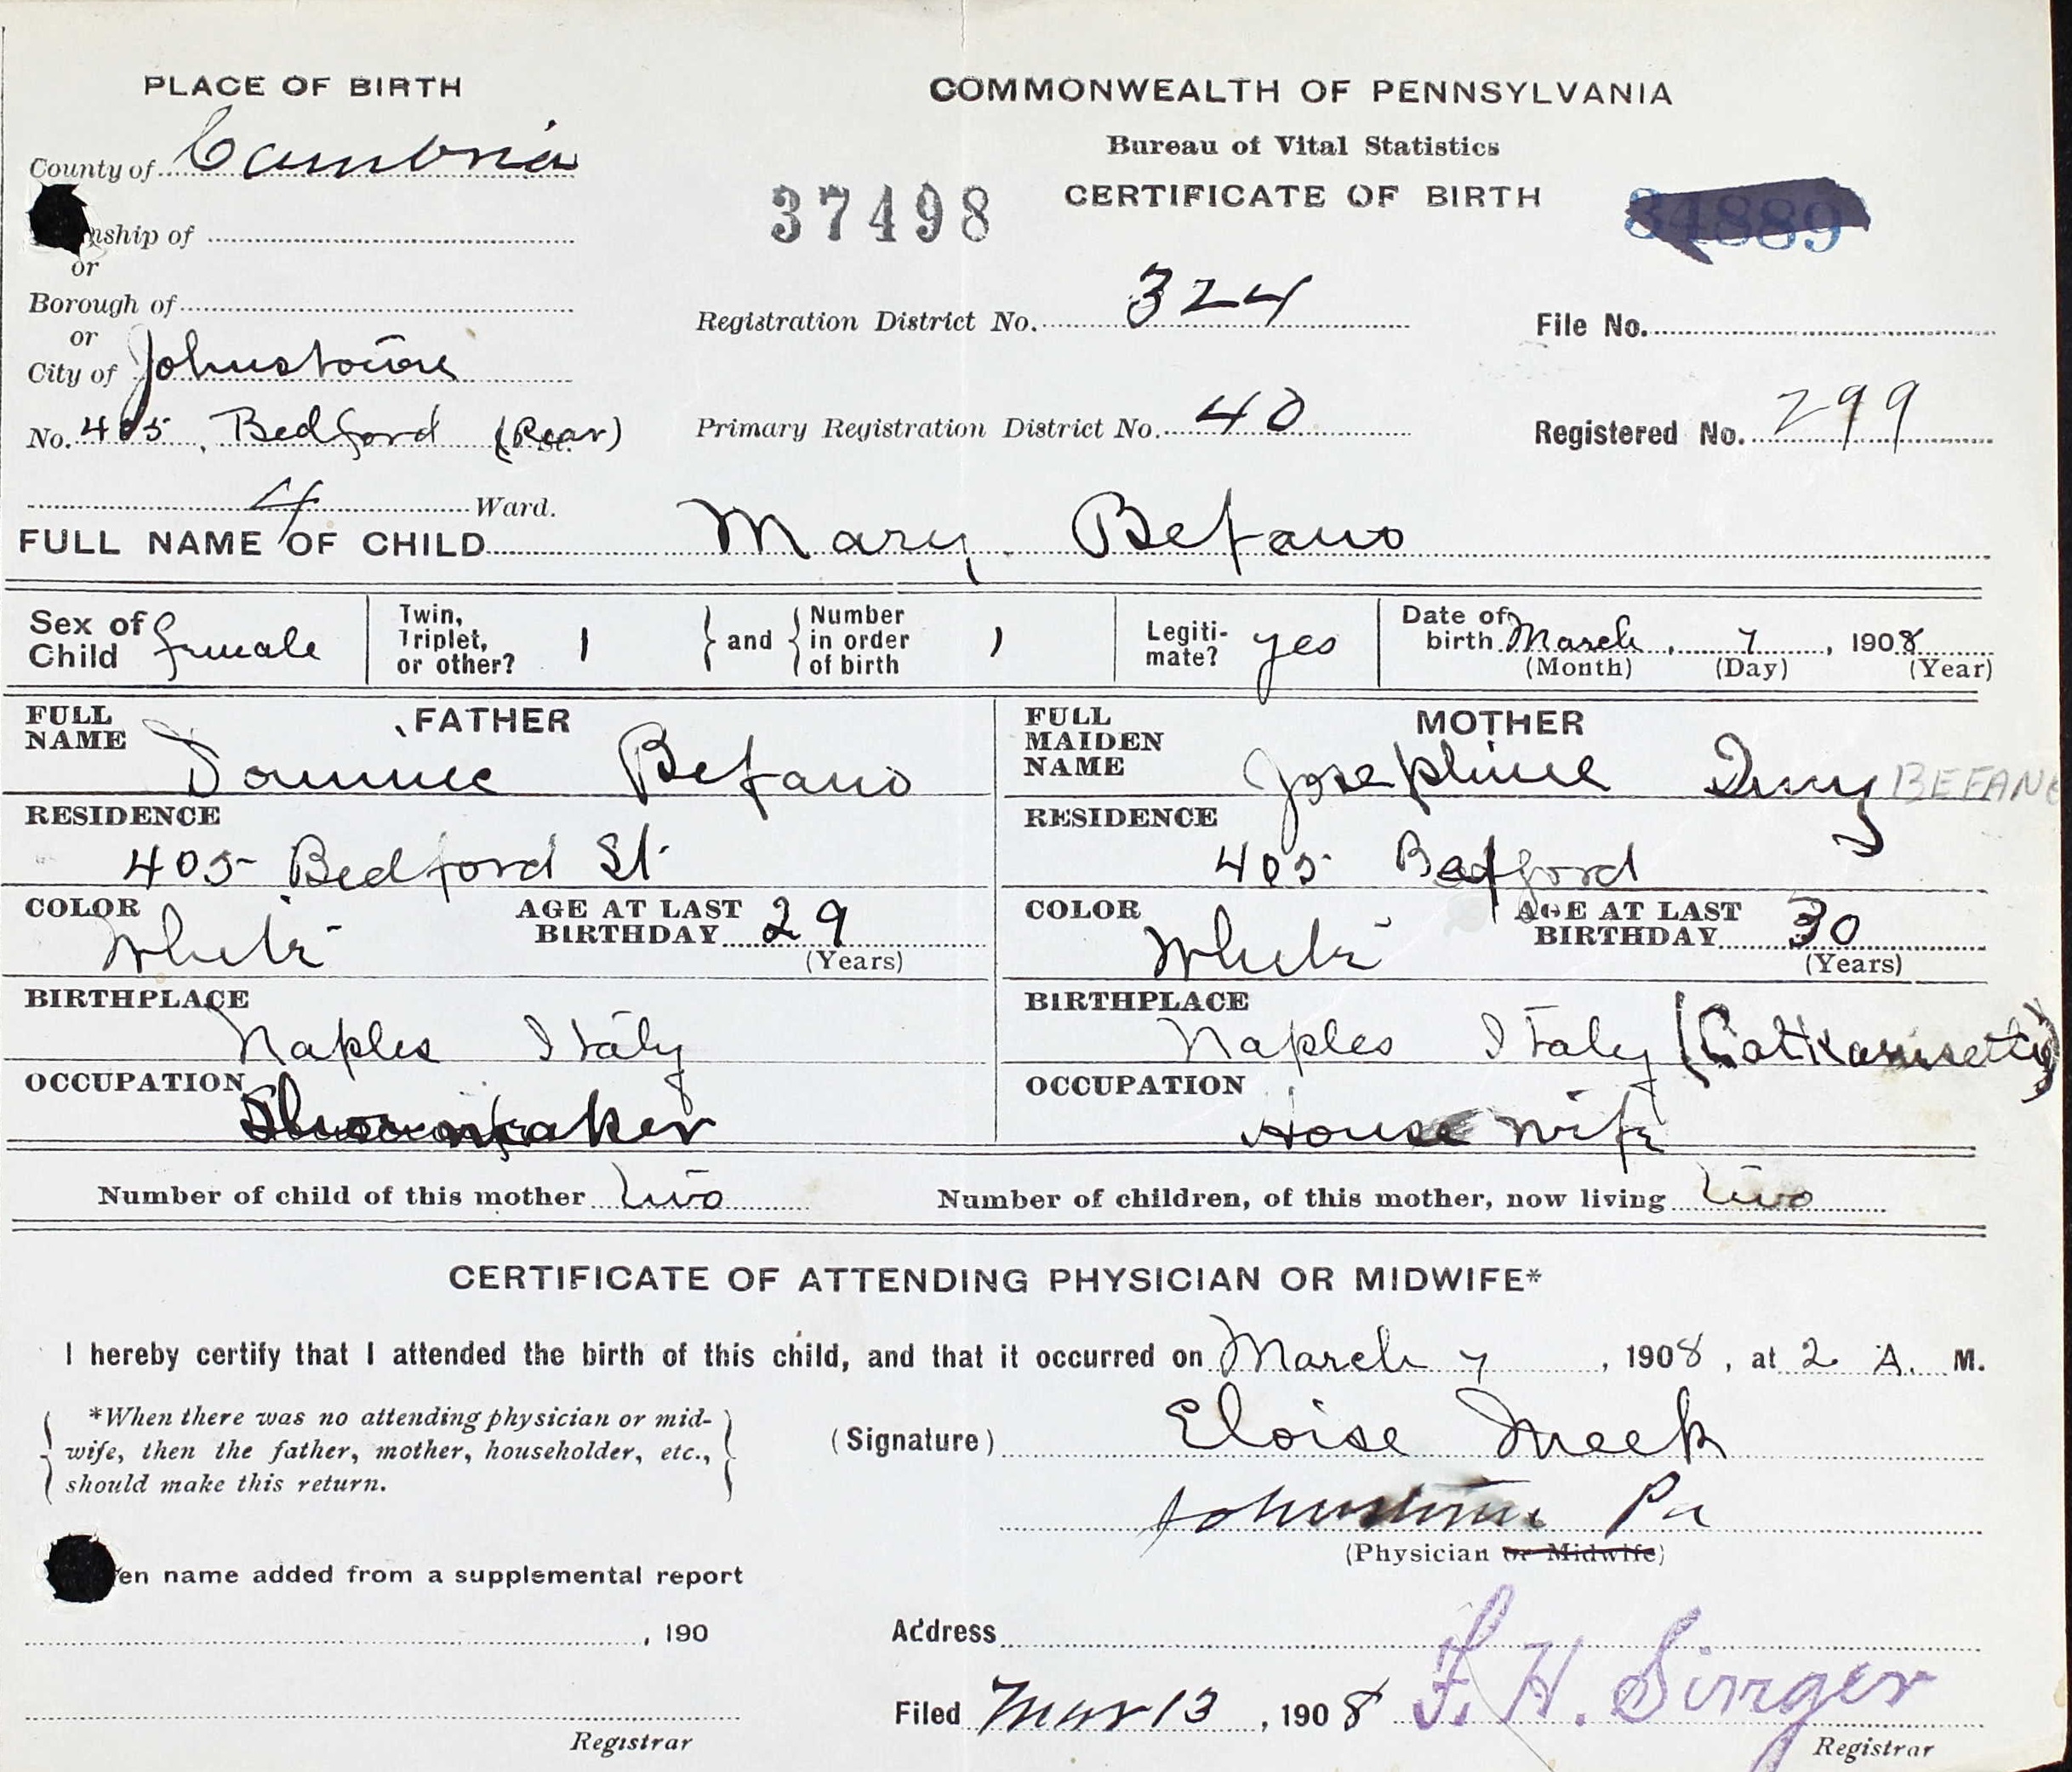 PLACE OF BIRTH
COMMONWEALTH OF PENNSYLVANIA
Bureau of Vital Statistics
CERTIFICATE OF BIRTH
37498
34889
County of Cambria
nship of
or
Borough of
or
City of Johnstown
No. 405, Bedford (Rear) St.
4 Ward.
Registration District No. 324
File No.
Primary Registration District No. 40
Registered No. 299
FULL NAME OF CHILD Mary Befano
Sex of Child female
Twin, Triplet, or other? 1
and
Number in order of birth 1
Legiti-mate? yes
Date of birth March, 7, 1908
(Month) (Day) (Year)
FATHER
FULL NAME
Befano
RESIDENCE
405 Bedford St.
COLOR White
AGE AT LAST BIRTHDAY 29
(Years)
BIRTHPLACE
Naples Italy
OCCUPATION
Shoemaker
MOTHER
FULL MAIDEN NAME
Josephine BEFANO
RESIDENCE
405 Bedford
COLOR White
AGE AT LAST BIRTHDAY 30
(Years)
BIRTHPLACE
Naples Italy
OCCUPATION
House wife
Number of child of this mother two
Number of children, of this mother, now living two
CERTIFICATE OF ATTENDING PHYSICIAN OR MIDWIFE*
I hereby certify that I attended the birth of this child, and that it occurred on March 7, 1908, at 2 A. M.
*When there was no attending physician or mid-
wife, then the father, mother, householder, etc.,
should make this return.
(Signature) Eloise Meek
Johnstown Pa
(Physician or Midwife)
en name added from a supplemental report
, 190
Registrar
Address
Filed Mar 13, 1908 F. H. Singer
Registrar